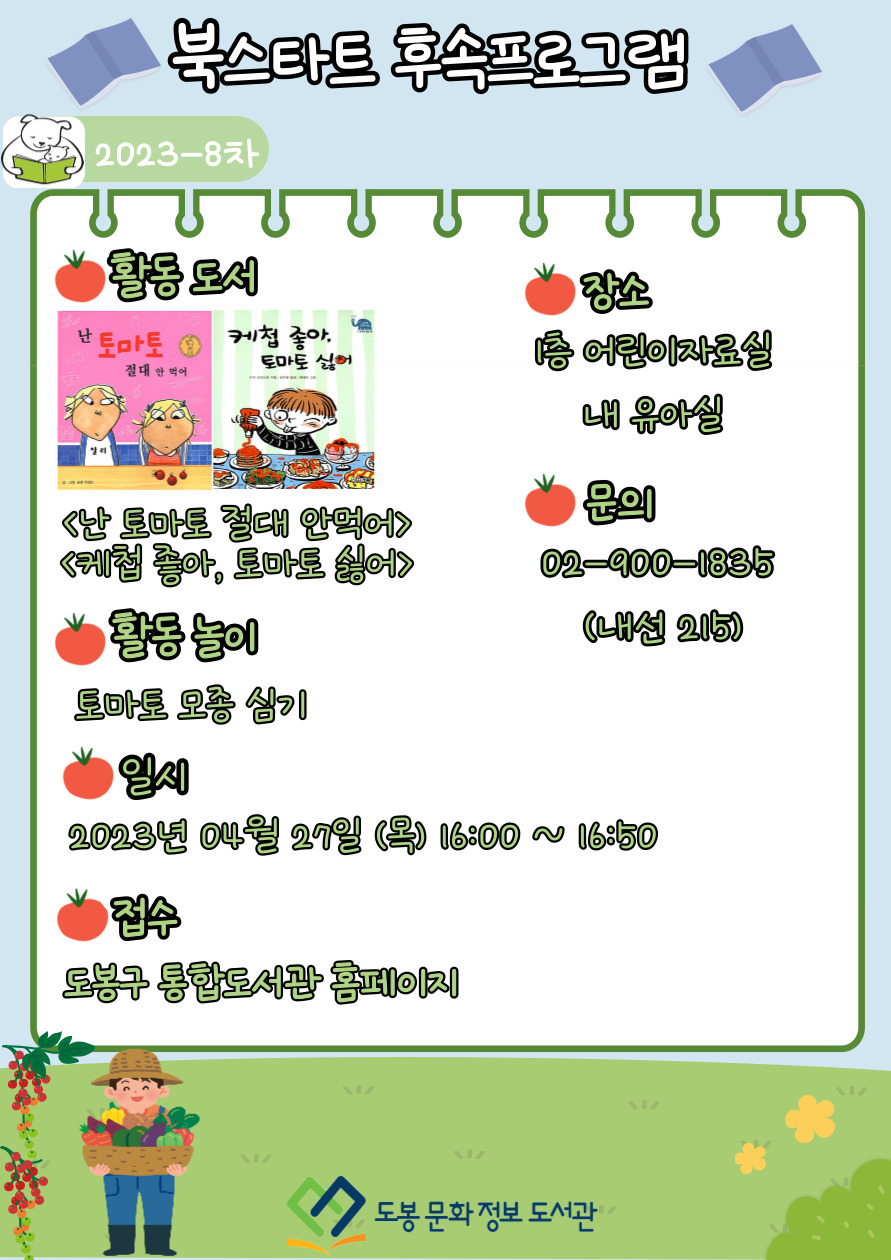 북스타트 후속프로그램
2023-8차
활동 도서
난
토마토
절대 안 먹어
케첩 좋아,
토마토 싫어
<난 토마토 절대 안먹어>
<케첩 좋아, 토마토 싫어>
활동 놀이
토마토 모종 심기
일시
2023년 04월 27일 (목) 16:00 ~ 16:50
접수
도봉구 통합도서관 홈페이지
장소
1층 어린이자료실
내 유아실
문의
02-900-1835
(내선 215)
도봉 문화 정보 도서관